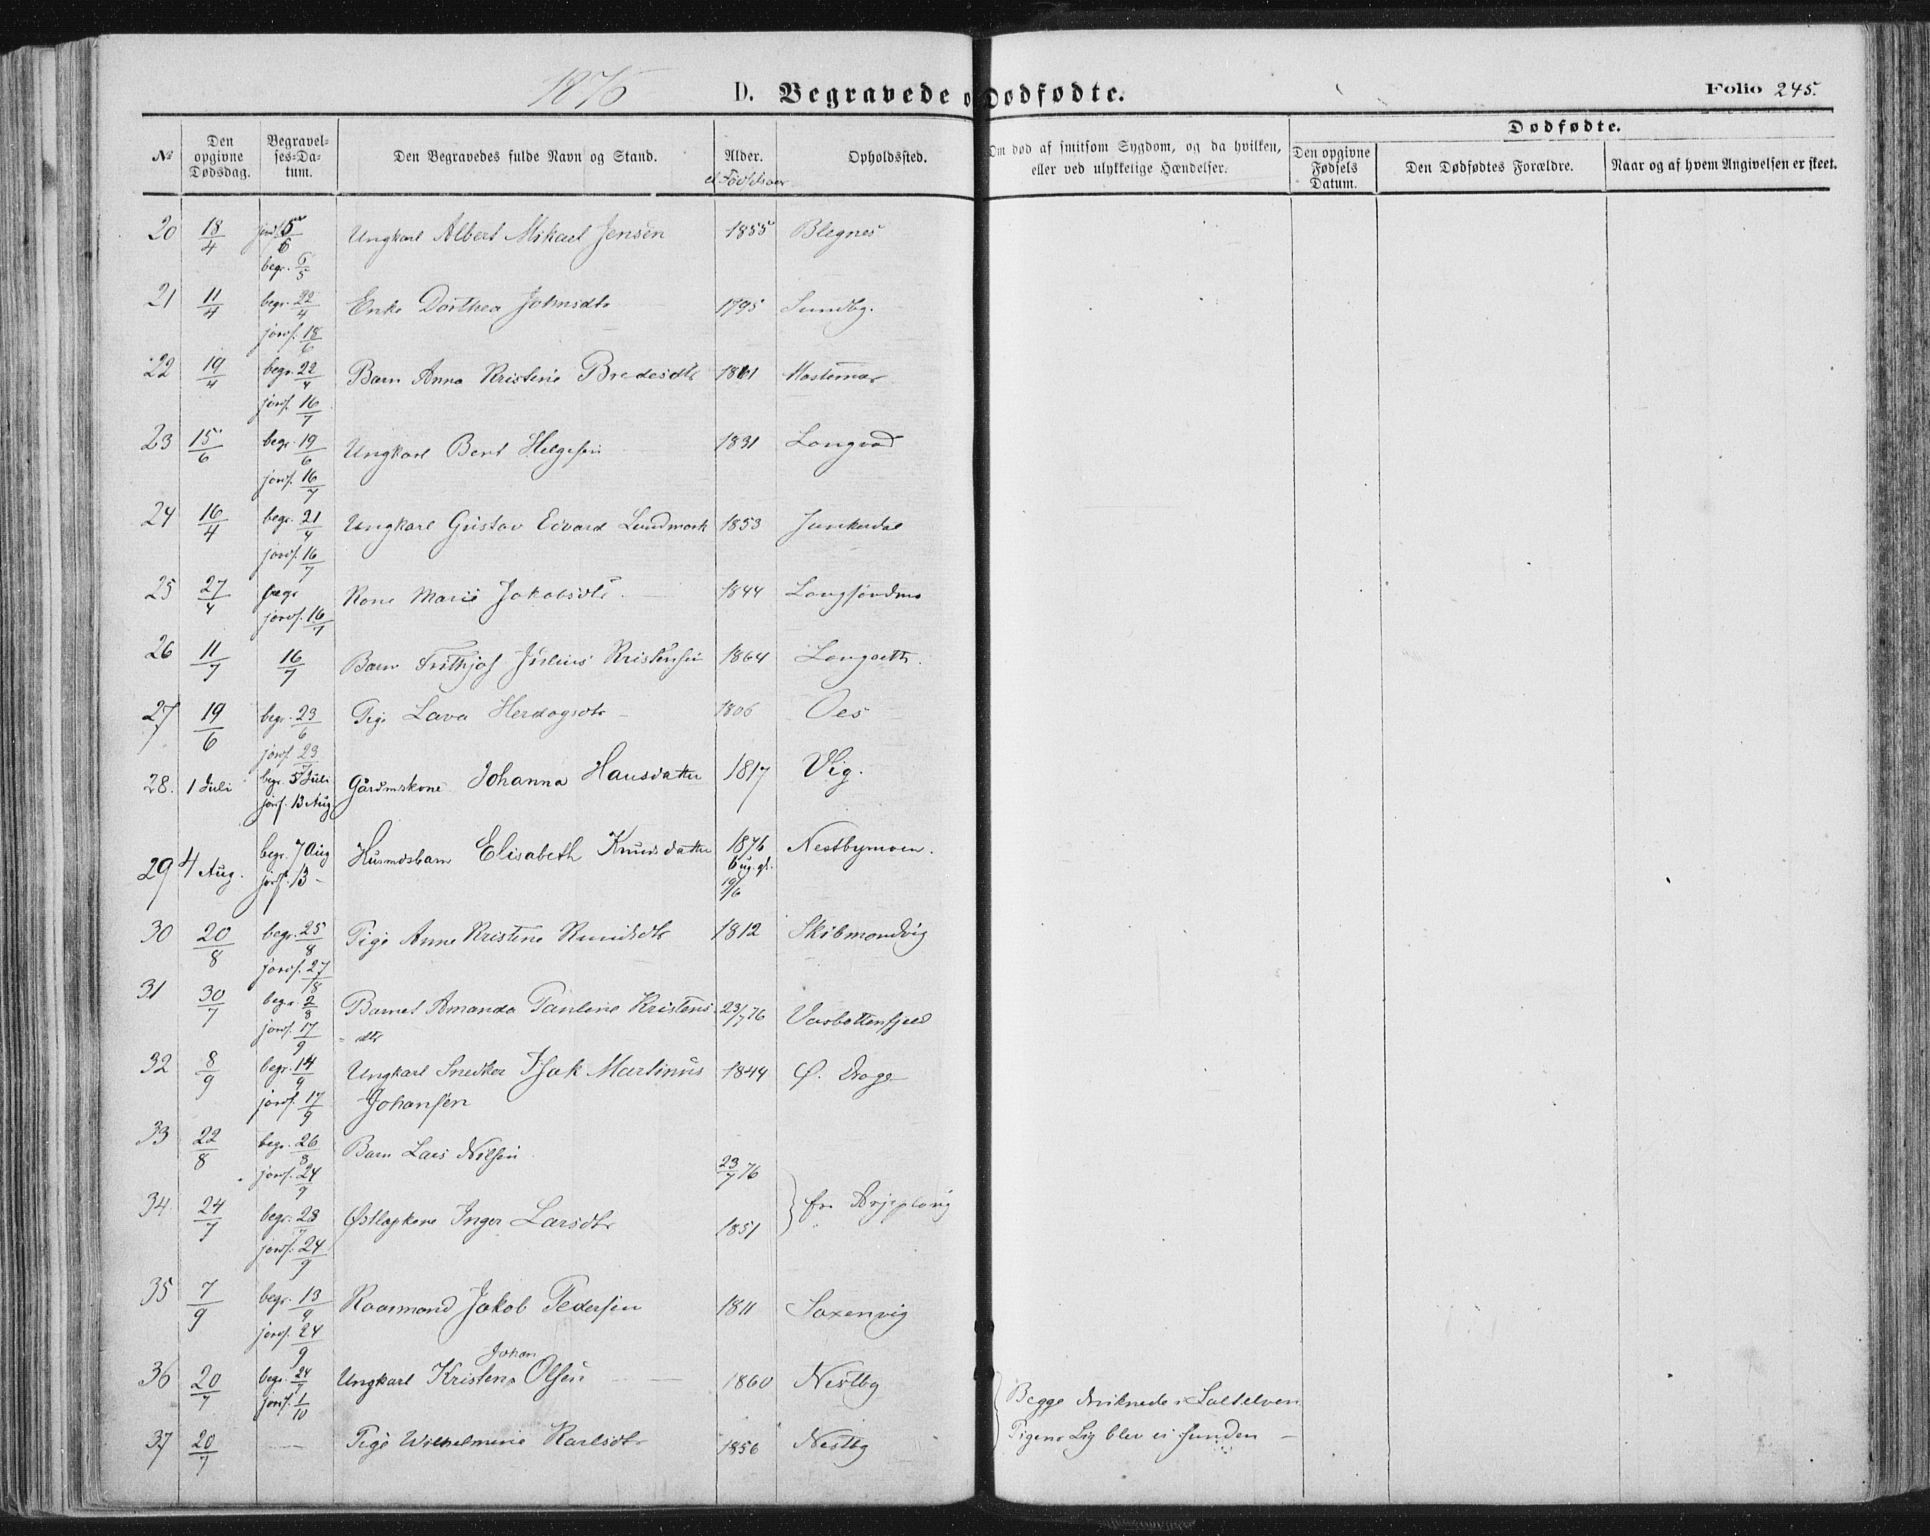 1876
D. Begravede o Dødfødte.
Folio 245.
№
Den opgivne Dødsdag.
Begravelses-Datum.
Den Begravedes fulde Navn og Stand.
Alder.
Opholdssted.
Om død af smitsom Sygdom, og da hvilken, eller ved ulykkelige Hændelser.
Dødfødte.
Den opgivne Fødsels Datum.
Den Dødfødtes Forældre.
Naar og af hvem Angivelsen er skeet.
20 18/4 begr. 5/5 Ungkarl Albert Mikael Jensen 1855 Blegnes
21 11/4 begr. 22/4 jordf. 18/6 Enke Dorthea Johnsdtr 1795 Sundby.
22 19/4 begr. 22/4 jordf. 16/7 Barn Anna Kristine Bredesdtr 1861
23 15/6 begr. 19/6 jordf. 16/7 Ungkarl Bent Helgesen 1831 Longvad
24 16/4 begr. 21/4 jordf. 16/7 Ungkarl Gustav Edvard Lundmark 1853 Junkerdal
25 27/4 begr jordf. 16/7 Kone Marie Jakobsdtr 1844
26 11/7 16/7 Barn Frithjof Julius Kristensen 1864
27 19/6 begr. 23/6 jordf. 23/7 Pige Lava Herdagsdtr 1806 Oes
28. 1 Juli begr. 5 Juli jordf. 13 Aug Gårdmskone Johanna Hansdatter 1817 Vig.
29 4 Aug. begr. 7 Aug jordf. 13 - Husmdsbarn Elisabeth Knudsdatter 1876 6 ug. gl. 19/6 Nestbymoen.
30 20/8 begr. 25/8 jordf. 27/8 Pige Anne Kristine Knudsdtr 1812 Skibmondvig
31 30/7 begr. 2/8 jordf. 17/9 Barnet Amanda Pauline Kristens 23/7 76 Vasbottenfjeld
dtr
32 8/9 begr. 14/9 jordf. 17/9 Ungkarl Snedker Isak Martinus 1844 Ø. Drage
Johansen
33 22/8 begr. 26/8 jordf. 24/9 Barn Lars Nilsen 23/7 76
34 24/7 begr. 28/7 jordf. 24/9 Østlapkone Inger Larsdtr 1851 fra Arjeploug
35 7/9 begr. 13/9 jordf. 24/9 Kaarmand Jakob Pedersen 1811 Saxenvig
Johan
36 20/7 begr. 24/7 jordf. 1/10 Ungkarl Kristens Olsen 1860 Nestby Begge druknede i Saltelven
37 20/7 — Pige Wilhelmine Karlsdtr 1856 Nestby Pigens Lig blev ei funden —